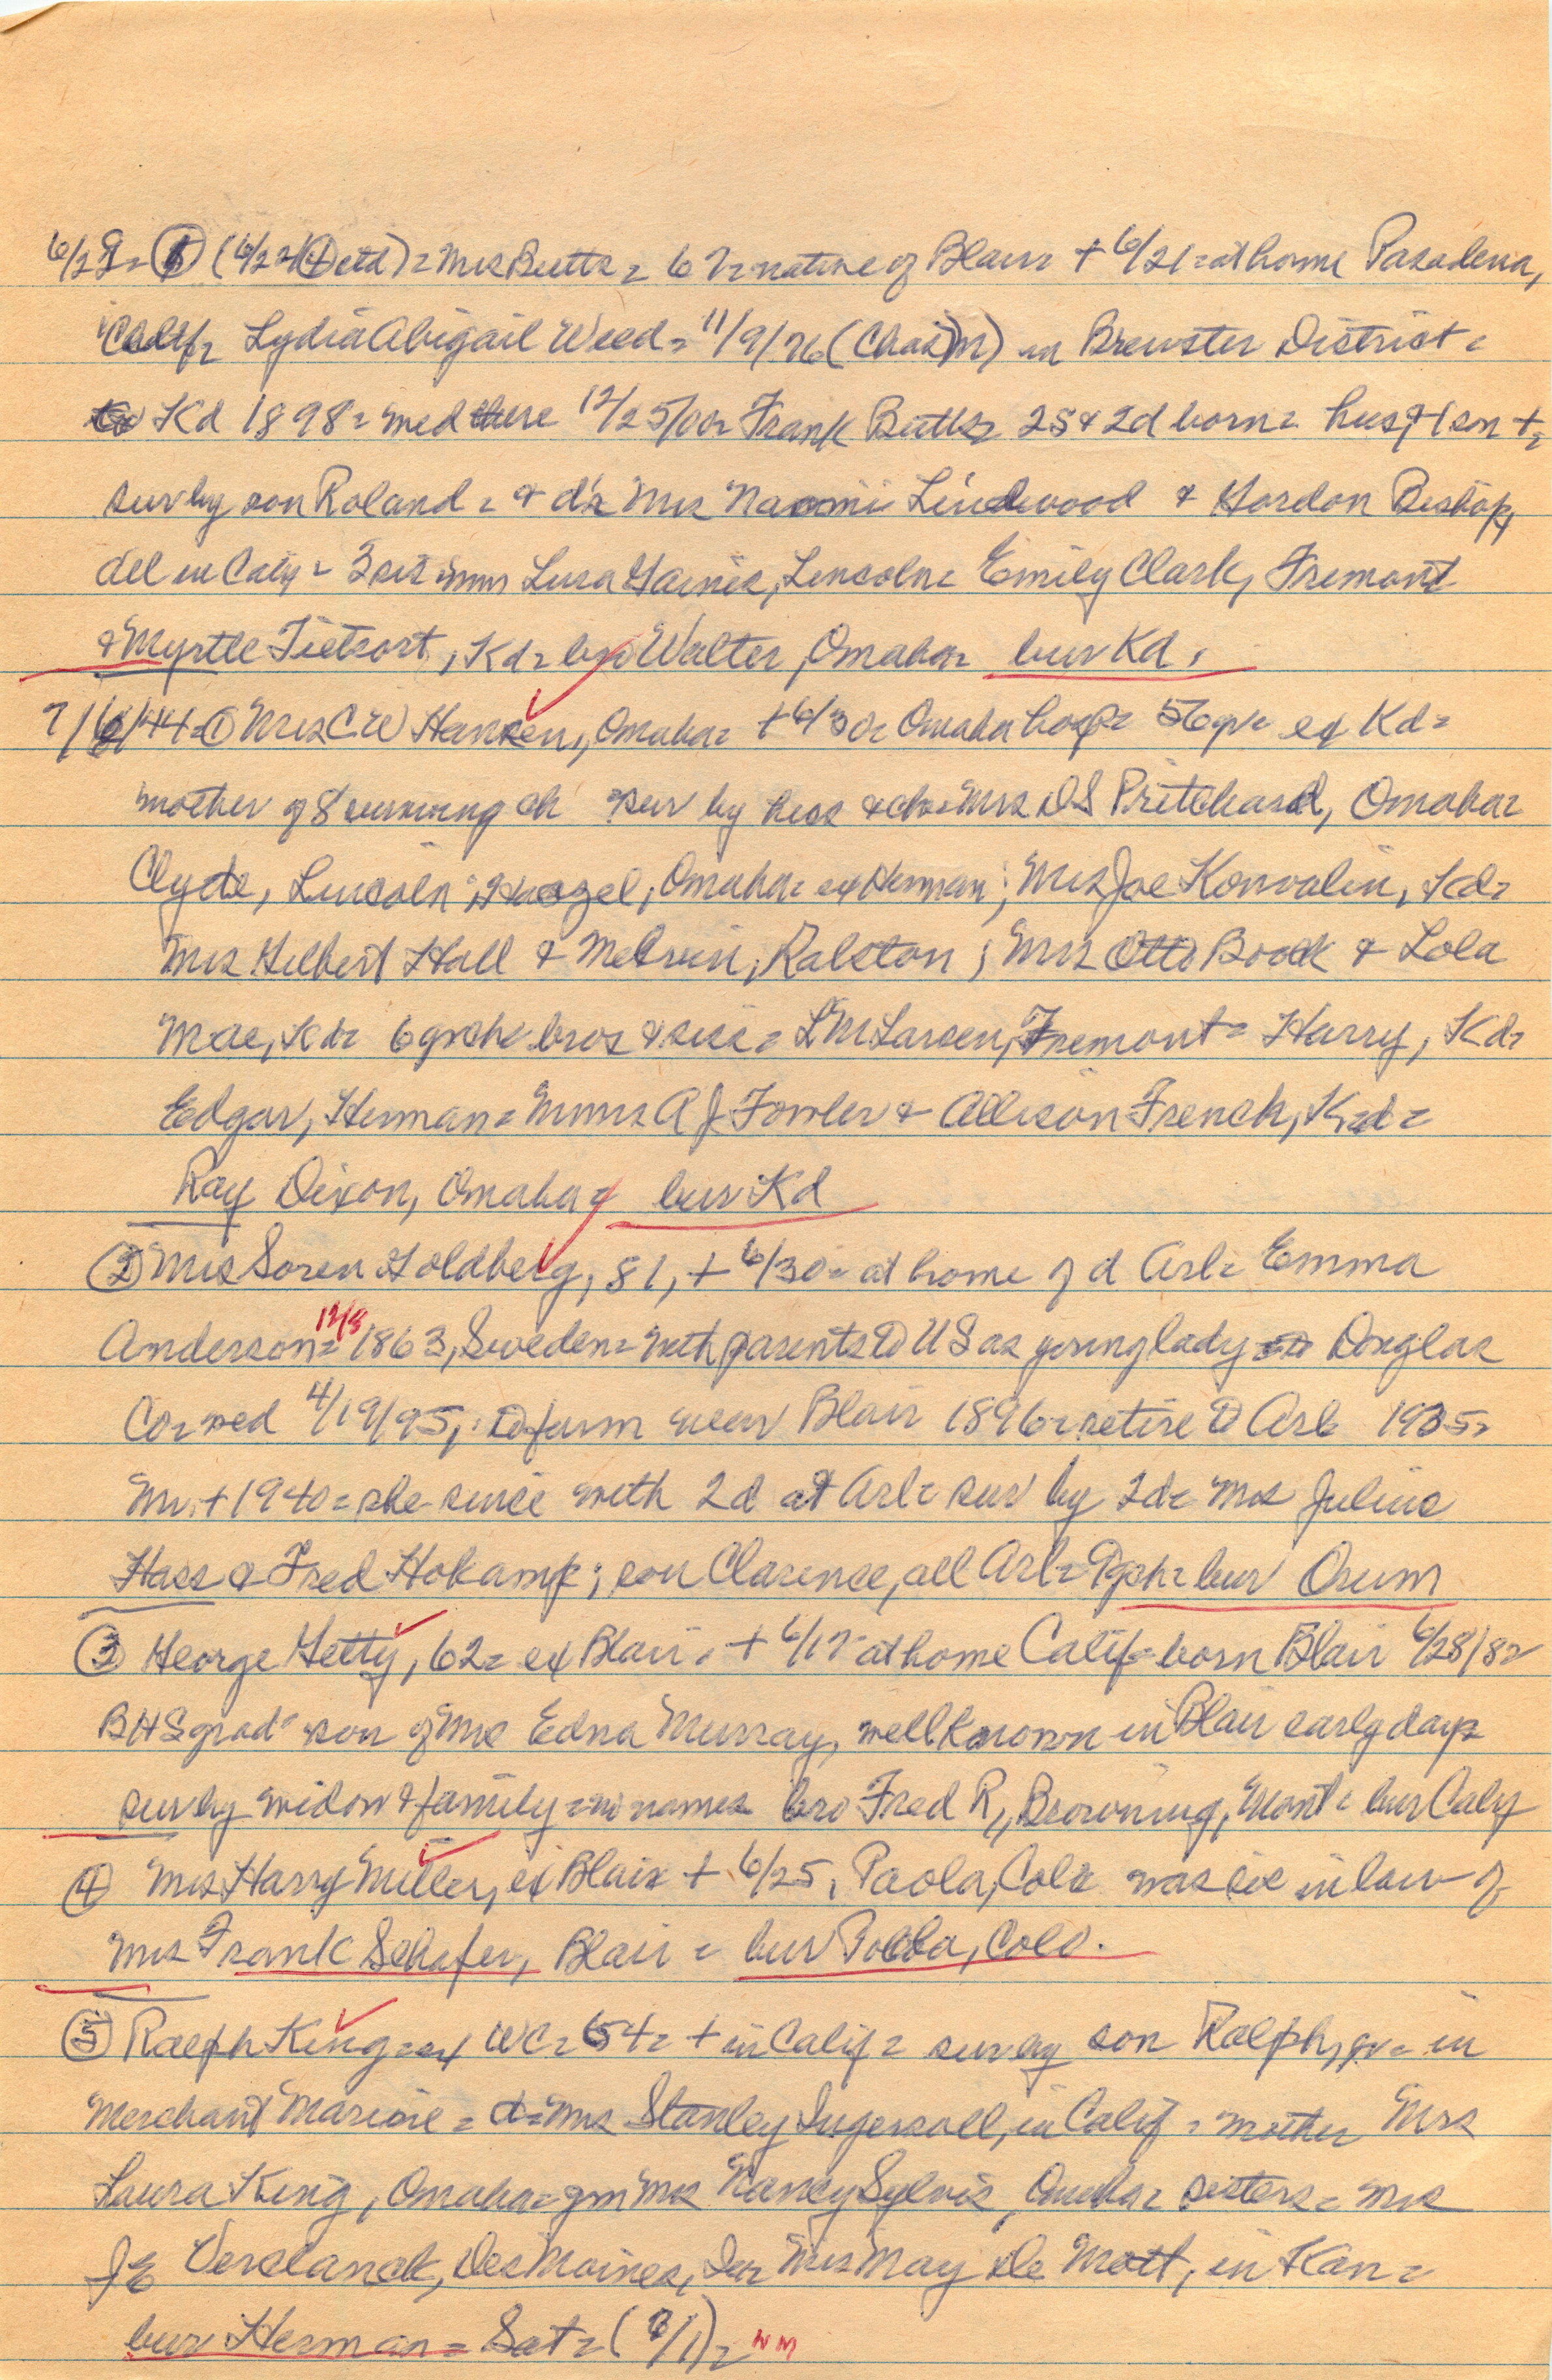 6/29= ① (6/22 ④ etd) = Mrs Butts = 67= native of Blair= + 6/21= at home Pasadena,
Calif= Lydia Abigail Weed= 11/9/76 (Chas M) in Brewster District=
Kd 1898= med there 12/25/00= Frank Butts= 2s & 2d born= hus & 1 son +=
sur by son Roland= & d's Mrs Naomi Lindwood & Gordon Bishop,
all in Calif= 3 sis mms Lura Gaines, Lincoln= Emily Clark, Fremont
& Myrtle Tietsort, Kd= bro Walter, Omaha= bur Kd.
7/6/44= ① Mrs C W Hansen, Omaha= + 6/30= Omaha hosp= 56 yr= ex Kd=
mother of 8 surviving ch sur by hus & ch= Mrs D S Pritchard, Omaha=
Clyde, Lincoln; Hazel, Omaha= ex Herman; Mrs Joe Konvalin, Kd=
Mrs Gilbert Hall & Melvin, Ralston; Mrs Otto Bock & Lola
Mae, Kd= 6 grch= bros & sis= L M Larsen, Fremont= Harry, Kd=
Edgar, Herman= Mmes A J Fowler & Allison French, Kd=
Ray Dixon, Omaha= bur Kd
② Mrs Soren Goldberg, 81, + 6/30= at home of d Arl= Emma
Anderson= 12/8 1863, Sweden= with parents to US as young lady Douglas
Co= med 4/19/95, to farm near Blair 1896= retire to Arl 1935=
Mr + 1940= she since with 2d at Arl= sur by 2d= Mrs Julius
Hass & Fred Hokamp; son Clarence, all Arl= 9gch= bur Orum
③ George Getty, 62= ex Blair= + 6/17= at home Calif= born Blair 6/28/82
BHS grad= son of Mrs Edna Murray, well known in Blair early days
sur by widow & family= no names bro Fred R, Browning, Mont= bur Calif
④ Mrs Harry Miller, ex Blair + 6/25, Paola, Colo was sis in law of
Mrs Frank Schafer, Blair= bur Paola, Colo.
⑤ Ralph King= ex WC= 54= + in Calif= sur by son Ralph, jr= in
Merchant Marine= d= Mrs Stanley Ingersoll, in Calif= mother Mrs
Laura King, Omaha= gm Mrs Nancy Sylvis, Omaha= sisters= Mrs
J E Verslanck, Des Moines, Ia= Mrs May De Mott, in Kan=
bur Herman= Sat= (7/1)= NM